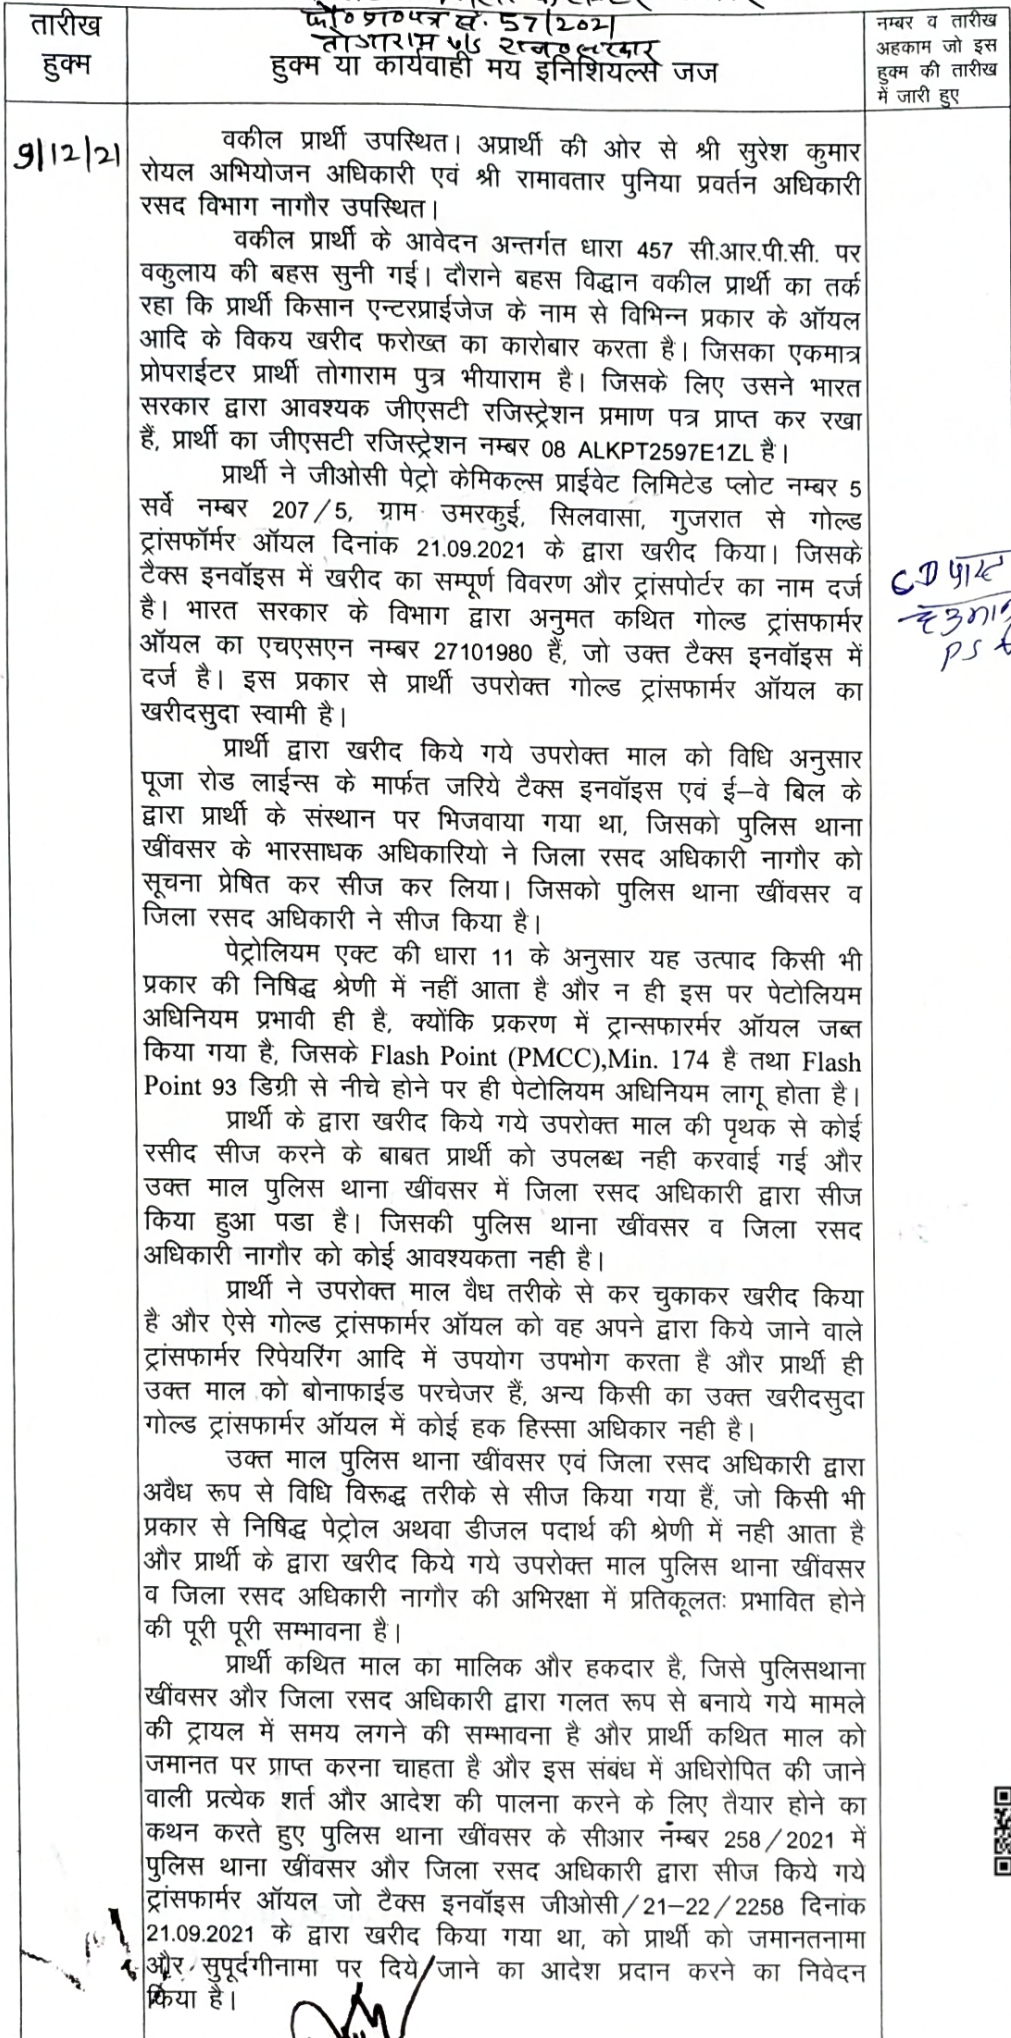 तारीख
हुक्म
फौ०प्रा०पत्र सं. 57/2021
तोगाराम v/s राज० सरकार
हुक्म या कार्यवाही मय इनिशियल्स जज
नम्बर व तारीख
अहकाम जो इस
हुक्म की तारीख
में जारी हुए
9/12/21
वकील प्रार्थी उपस्थित। अप्रार्थी की ओर से श्री सुरेश कुमार
रोयल अभियोजन अधिकारी एवं श्री रामावतार पुनिया प्रवर्तन अधिकारी
रसद विभाग नागौर उपस्थित।
वकील प्रार्थी के आवेदन अन्तर्गत धारा 457 सी.आर.पी.सी. पर
वकुलाय की बहस सुनी गई। दौराने बहस विद्धान वकील प्रार्थी का तर्क
रहा कि प्रार्थी किसान एन्टरप्राईजेज के नाम से विभिन्न प्रकार के ऑयल
आदि के विकय खरीद फरोख्त का कारोबार करता है। जिसका एकमात्र
प्रोपराईटर प्रार्थी तोगाराम पुत्र भीयाराम है। जिसके लिए उसने भारत
सरकार द्वारा आवश्यक जीएसटी रजिस्ट्रेशन प्रमाण पत्र प्राप्त कर रखा
हैं, प्रार्थी का जीएसटी रजिस्ट्रेशन नम्बर 08 ALKPT2597E1ZL है।
प्रार्थी ने जीओसी पेट्रो केमिकल्स प्राईवेट लिमिटेड प्लोट नम्बर 5
सर्वे नम्बर 207/5, ग्राम उमरकुई, सिलवासा, गुजरात से गोल्ड
ट्रांसफॉर्मर ऑयल दिनांक 21.09.2021 के द्वारा खरीद किया। जिसके
टैक्स इनवॉइस में खरीद का सम्पूर्ण विवरण और ट्रांसपोर्टर का नाम दर्ज
है। भारत सरकार के विभाग द्वारा अनुमत कथित गोल्ड ट्रांसफार्मर
ऑयल का एचएसएन नम्बर 27101980 हैं, जो उक्त टैक्स इनवॉइस में
दर्ज है। इस प्रकार से प्रार्थी उपरोक्त गोल्ड ट्रांसफार्मर ऑयल का
खरीदसुदा स्वामी है।
CD
PS
प्रार्थी द्वारा खरीद किये गये उपरोक्त माल को विधि अनुसार
पूजा रोड लाईन्स के मार्फत जरिये टैक्स इनवॉइस एवं ई–वे बिल के
द्वारा प्रार्थी के संस्थान पर भिजवाया गया था, जिसको पुलिस थाना
खींवसर के भारसाधक अधिकारियो ने जिला रसद अधिकारी नागौर को
सूचना प्रेषित कर सीज कर लिया। जिसको पुलिस थाना खींवसर व
जिला रसद अधिकारी ने सीज किया है।
पेट्रोलियम एक्ट की धारा 11 के अनुसार यह उत्पाद किसी भी
प्रकार की निषिद्ध श्रेणी में नहीं आता है और न ही इस पर पेटोलियम
अधिनियम प्रभावी ही है, क्योंकि प्रकरण में ट्रान्सफारर्मर ऑयल जब्त
किया गया है, जिसके Flash Point (PMCC),Min. 174 है तथा Flash
Point 93 डिग्री से नीचे होने पर ही पेटोलियम अधिनियम लागू होता है।
प्रार्थी के द्वारा खरीद किये गये उपरोक्त माल की पृथक से कोई
रसीद सीज करने के बाबत प्रार्थी को उपलब्ध नही करवाई गई और
उक्त माल पुलिस थाना खींवसर में जिला रसद अधिकारी द्वारा सीज
किया हुआ पडा है। जिसकी पुलिस थाना खींवसर व जिला रसद
अधिकारी नागौर को कोई आवश्यकता नही है।
प्रार्थी ने उपरोक्त माल वैध तरीके से कर चुकाकर खरीद किया
है और ऐसे गोल्ड ट्रांसफार्मर ऑयल को वह अपने द्वारा किये जाने वाले
ट्रांसफार्मर रिपेयरिंग आदि में उपयोग उपभोग करता है और प्रार्थी ही
उक्त माल को बोनाफाईड परचेजर हैं, अन्य किसी का उक्त खरीदसुदा
गोल्ड ट्रांसफार्मर ऑयल में कोई हक हिस्सा अधिकार नही है।
उक्त माल पुलिस थाना खींवसर एवं जिला रसद अधिकारी द्वारा
अवैध रूप से विधि विरूद्ध तरीके से सीज किया गया हैं, जो किसी भी
प्रकार से निषिद्ध पेट्रोल अथवा डीजल पदार्थ की श्रेणी में नही आता है
और प्रार्थी के द्वारा खरीद किये गये उपरोक्त माल पुलिस थाना खींवसर
व जिला रसद अधिकारी नागौर की अभिरक्षा में प्रतिकूलतः प्रभावित होने
की पूरी पूरी सम्भावना है।
प्रार्थी कथित माल का मालिक और हकदार है, जिसे पुलिसथाना
खींवसर और जिला रसद अधिकारी द्वारा गलत रूप से बनाये गये मामले
की ट्रायल में समय लगने की सम्भावना है और प्रार्थी कथित माल को
जमानत पर प्राप्त करना चाहता है और इस संबंध में अधिरोपित की जाने
वाली प्रत्येक शर्त और आदेश की पालना करने के लिए तैयार होने का
कथन करते हुए पुलिस थाना खींवसर के सीआर नंम्बर 258/2021 में
पुलिस थाना खींवसर और जिला रसद अधिकारी द्वारा सीज किये गये
ट्रांसफार्मर ऑयल जो टैक्स इनवॉइस जीओसी/21–22/2258 दिनांक
21.09.2021 के द्वारा खरीद किया गया था, को प्रार्थी को जमानतनामा
और सुपूर्दगीनामा पर दिये जाने का आदेश प्रदान करने का निवेदन
किया है।